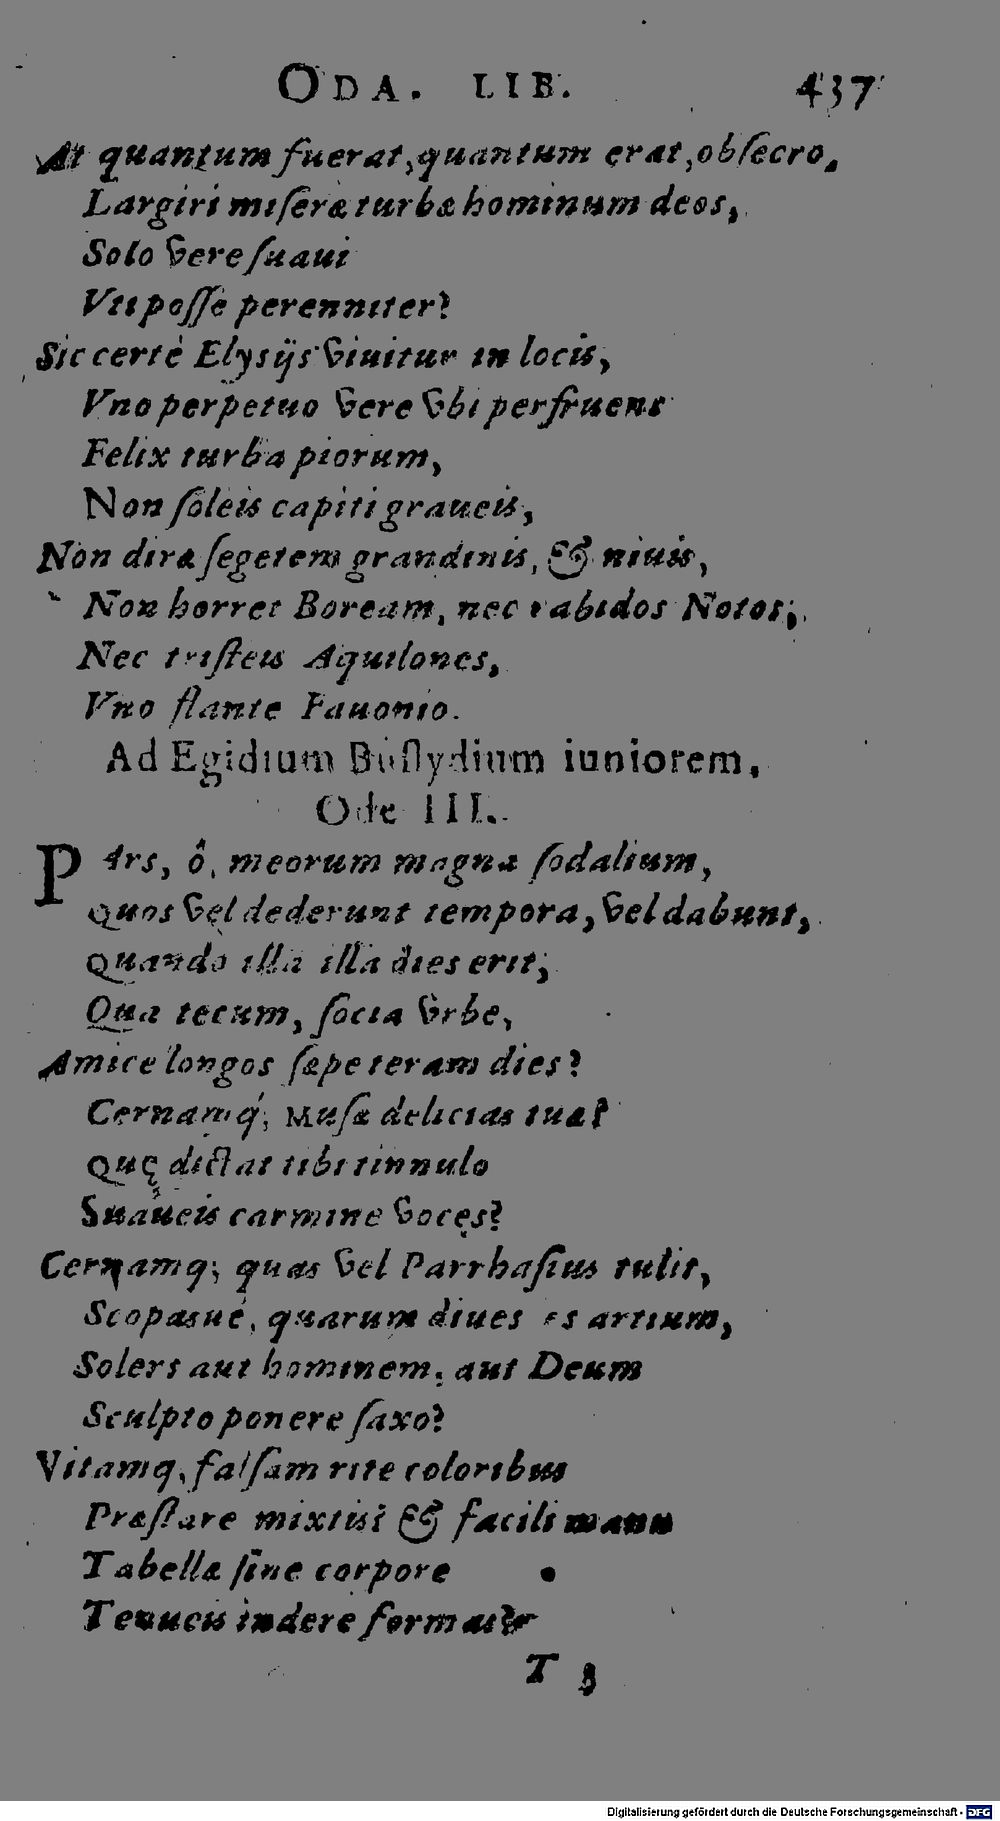 ODA. LIB. 437
At quantum fuerat, quantum erat, obſecro,
Largiri miſeræ turbæ hominum deos,
Solo vere ſuaui
Vti poſſe perenniter?
Sic certè Elysijs viuitur in locis,
Vno perpetuo vere vbi perfruens
Felix turba piorum,
Non ſoleis capiti graueis,
Non diræ ſegetem grandinis, & niuis,
Non horret Boream, nec rabidos Notos;
Nec triſteis Aquilones,
Vno flante Fauonio.
Ad Egidium Buſlydium iuniorem,
Ode III.
PArs, ô, meorum magna ſodalium,
Quos vel dederunt tempora, vel dabunt,
Quando illa illa dies erit;
Qua tecum, ſocia vrbe,
Amice longos ſæpe teram dies?
Cernamq́; Muſæ delicias tuæ?
Quę dictat tibi tinnulo
Suaueis carmine voces?
Cernamq; quas vel Parrhaſius tulit,
Scopasué, quarum diues es artium,
Solers aut hominem, aut Deum
Sculpto ponere ſaxo?
Vitamq, falſam rite coloribus
Præſtare mixtis? & facili manu
Tabellæ ſine corpore
Tenueis indere formas?
T 3
Digitalisierung gefördert durch die Deutsche Forschungsgemeinschaft - DFG